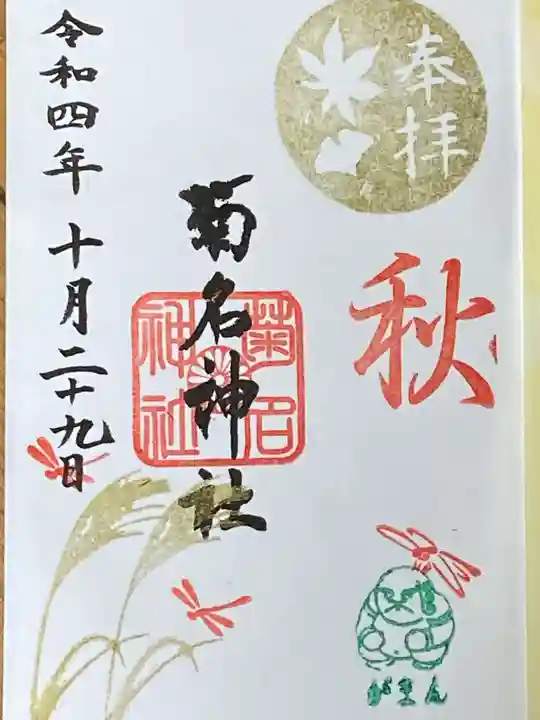 奉拝
秋
がまん
菊名神社
菊名
神社
令和四年 十月二十九日